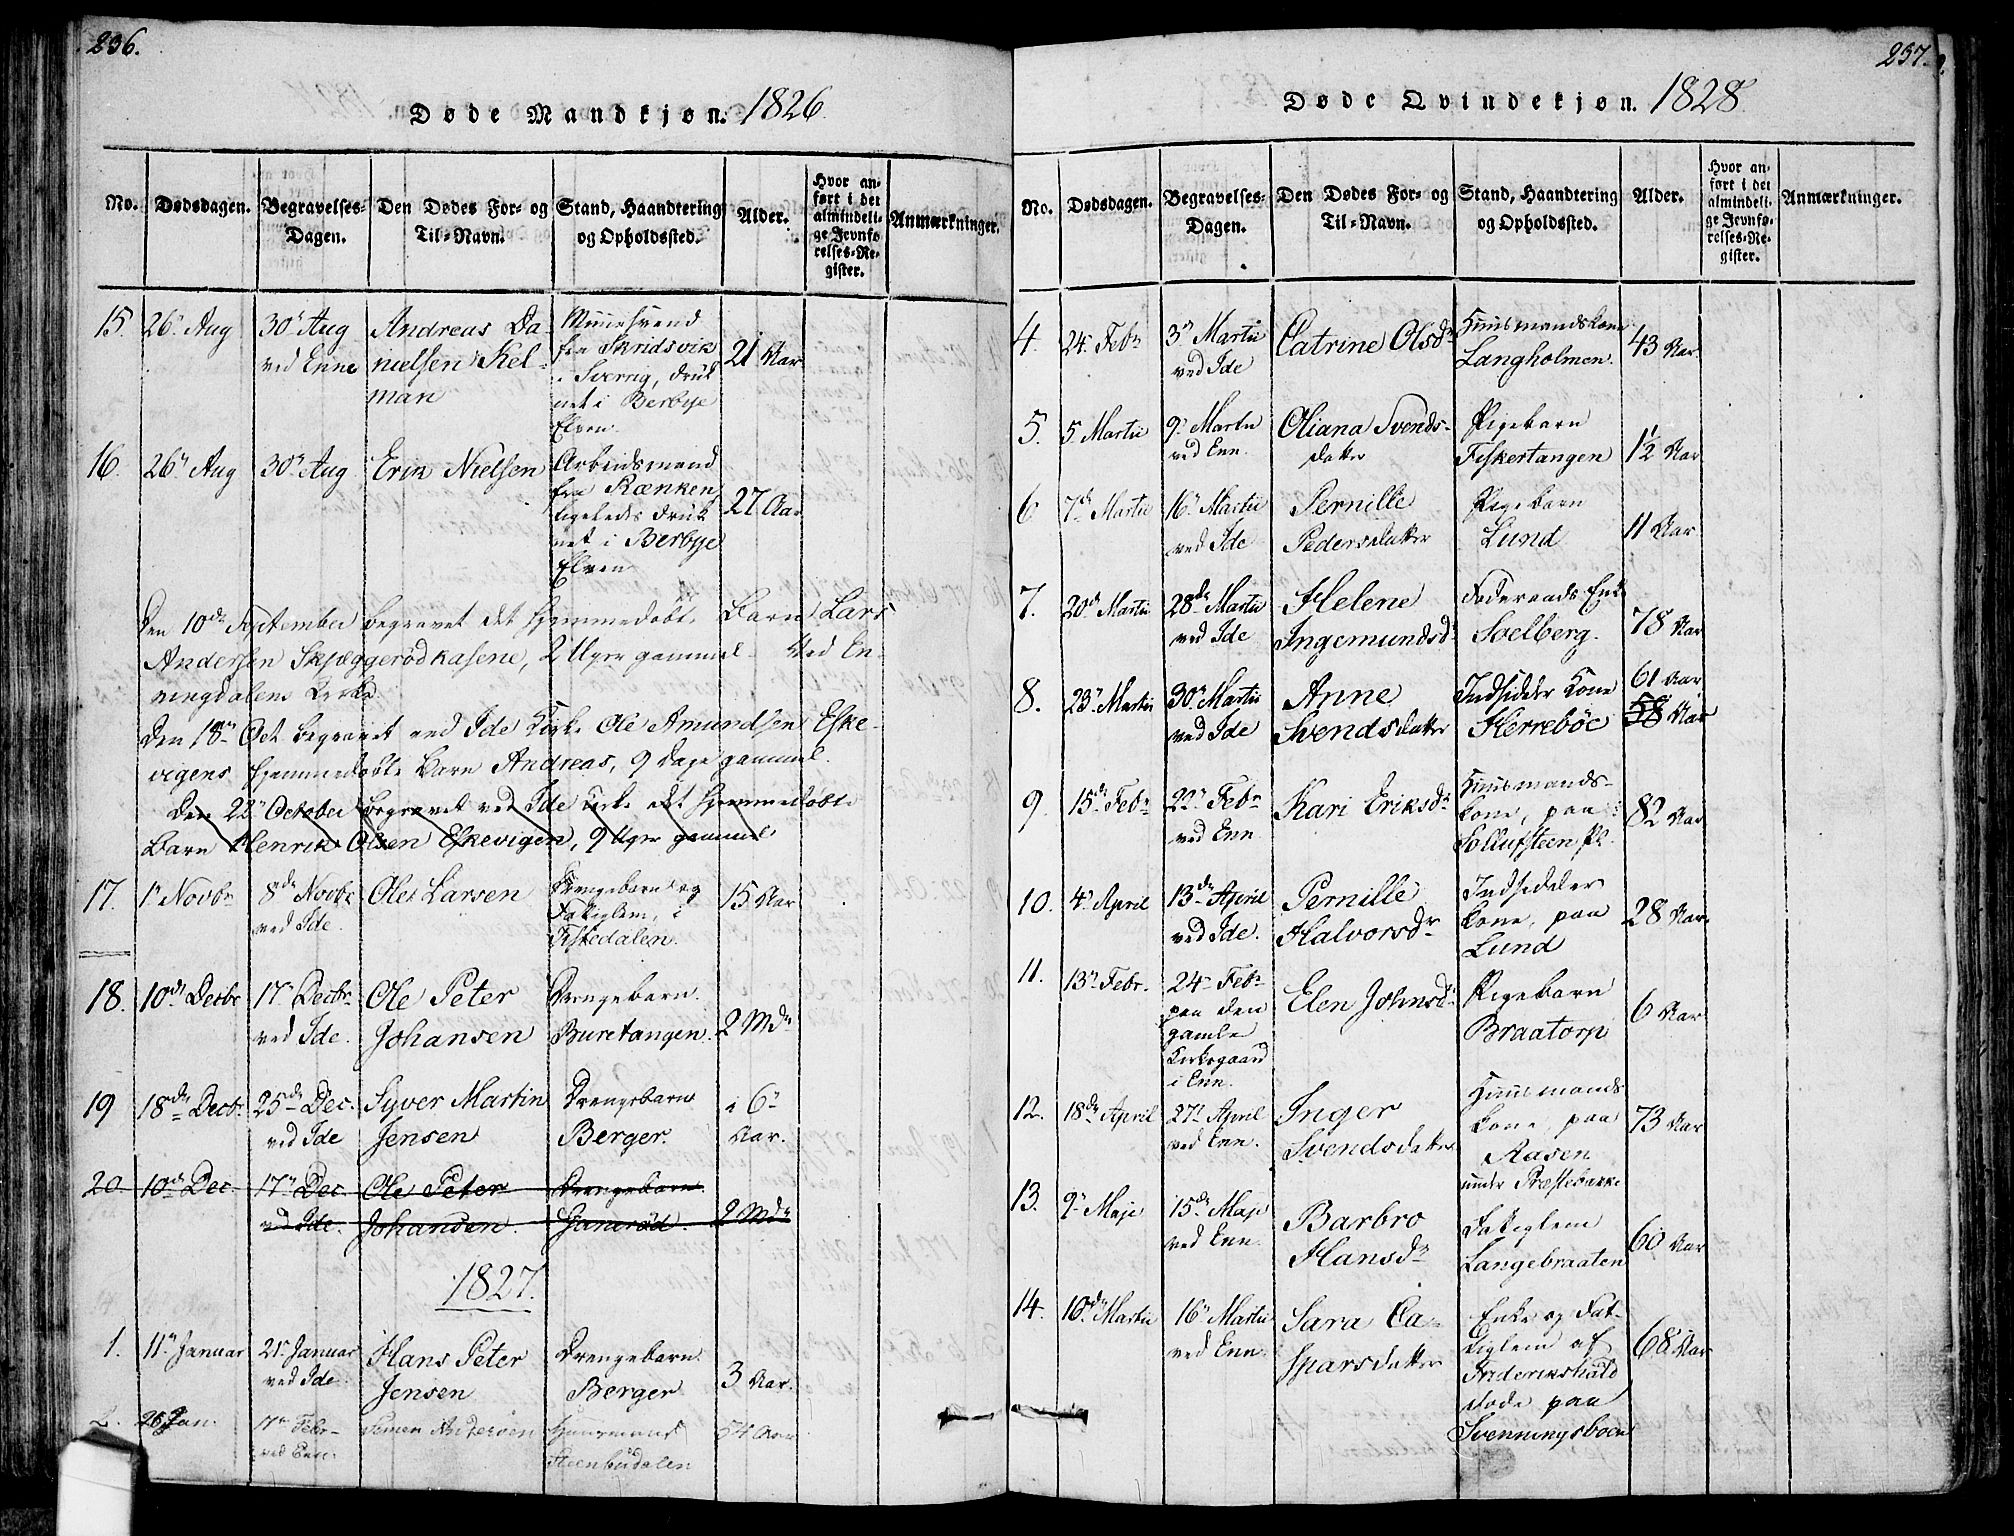 236.
Døde Mandkjøn. 1826
No.
Dødsdagen.
Begravelses-
Dagen.
Den Dødes For- og
Til-Navn.
Stand, Haandtering
og Opholdssted.
Alder.
Hvor an-
ført i det
almindeli-
ge Jevnfø-
relses-Re-
gister.
Anmærkninger.
15. 26 Aug
30 Aug
ved Enne
Andreas Da-
nielsen Kel-
man
fra Skridsvik
i Sverrig, druk
net i Berbye
Elven.
21 Aar
16. 26 Aug
30 Aug
Erik Nielsen
Arbeidsmand
fra Rænken
ligeledes druk
net i Berbye
Elven
27 Aar
Den 10de September begravet det hjemmedøbte Barn Lars
Andersen Skjæggerødkasene, 2 Uger gammel. Ved En-
ningdalens Kirke.
Den 18 Oct begravet ved Ide Kirke Ole Amundsen Eske-
vigens hjemmedøbte Barn Andreas, 9 Dage gammel.
Den 22 October begravet ved Ide Kirke det hjemmedøbte
Barn Henrik Olsen Eskevigen, 9 Uger gammel
17. 1 Novbr
8de Novbr
ved Ide.
Ole Larsen
Drengebarn og
Fatiglem, i
Tistedalen.
15 Aar
18. 10de Decbr
17 Decbr.
ved Ide.
Ole Peter
Johansen
Drengebarn.
Buretangen.
2 Mdr
19 18de Decbr.
25de Dec.
ved Ide
Syver Martin
Jensen
Drengebarn
Berger.
i 6
Aar.
20 10de Dec.
17 Dec
ved Ide.
Ole Peter
Johansen
Drengebarn
2 Mdr
1827.
1. 11 Januar
21 Januar
ved Ide.
Hans Peter
Jensen
Drengebarn
Berger
3 Aar.
2. 26 Jan.
1 Febr
ved Enn.
Simen Andersen
Huusmand
54 Aar
237.
Døde Qvindekjøn. 1828
No.
Dødsdagen.
Begravelses-
Dagen.
Den Dødes For- og
Til-Navn.
Stand, Haandtering
og Opholdssted.
Alder.
Hvor an-
ført i det
almindeli-
ge Jevnfø-
relses-Re-
gister.
Anmærkninger.
4. 24 Febr
3 Martii
ved Ide
Catrine Olsdr
Huusmandskone
Langholmen.
43 Aar.
5. 5 Martii
9 Martii
ved Enn.
Oliana Svends-
datter
Pigebarn
Fiskertangen
1½ Aar
6 7de Martii
16 Martii
ved Ide
Pernille
Pedersdatter
Pigebarn
Lund
11 Aar
7. 20de Martii
28de Martii
ved Ide
Helene
Ingemundsdr
Foderaads Enke
Soelberg.
78 Aar
8. 23 Martii
30 Martii
ved Ide
Anne
Svendsdatter
Indsidder Kone
Herrebøe
61 Aar
58 Aar
9. 15de Febr
22 Febr
ved Enn.
Kari Eriksdr
Huusmands-
kone, paa
82 Aar
10. 4 April
13de April
ved Ide.
Pernille
Halvorsdr
Indsidder
kone, paa
Lund
28 Aar.
11. 13 Febr.
24 Febr
paa den
gamle
Kirkegaard
i Enn.
Elen Johnsdr
Pigebarn
Braatorp
6 Aar
12. 18de April
27 April
ved Enn.
Inger
Svendsdatter
Huusmands
kone, paa
Aasen
under Præstebakke
73 Aar
13. 9 Maje
15de Maje
ved Enn.
Barbro
Hansdr
Fatiglem
Langebraaten
60 Aar
14. 10de Martii
16 Martii
ved Enn.
Sara Ca-
sparsdatter
Enke og Fat-
tiglem af
Friderikshald
døde paa
Svenningsboen
68 Aar